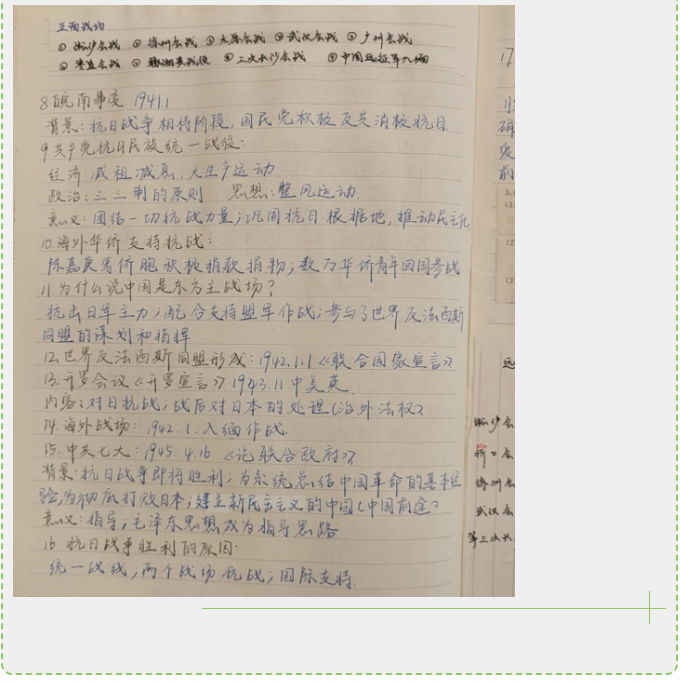 正面战场
① 淞沪会战 ② 徐州会战 ③ 太原会战 ④ 武汉会战 ⑤ 广州会战
⑥ 枣宜会战 ⑦ 豫湘桂战役 ⑧ 三次长沙会战 ⑨ 中国远征军入缅
8.皖南事变 1941.1
背景:抗日战争相持阶段,国民党积极反共消极抗日
9.共产党抗日民族统一战役:
经济:减租减息、大生产运动
政治:三三制的原则 思想:整风运动
意义:团结一切抗战力量;巩固抗日根据地,推动民主化
10.海外华侨支持抗战:
陈嘉庚等侨胞积极捐款捐物;数万华侨青年回国参战
11.为什么说中国是东方主战场?
抗击日军主力;配合支持盟军作战;参与了世界反法西斯
同盟的谋划和指挥
12.世界反法西斯同盟形成:1942.1.1《联合国家宣言》
13.开罗会议《开罗宣言》1943.11 中美英
内容:对日抗战;战后对日本的处理(治外法权)
14.海外战场:1942.1.入缅作战
15.中共七大:1945.4.16 《论联合政府》
背景:抗日战争即将胜利;为系统总结中国革命的基本经
验,为彻底打败日本;建立新民主主义的中国(中国前途)
意义:指导;毛泽东思想成为指导思路
16 抗日战争胜利的原因:
统一战线;两个战场抗战;国际支持.
17
远
淞沪会
徐州会
武汉会
第三次长